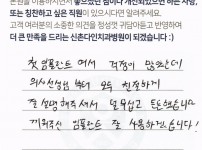 본원을 이용하시면서 좋으셨던 점이나 개선되었으면 하는 사항,
또는 칭찬하고 싶은 직원이 있으시다면 알려주세요.
고객 여러분의 소중한 의견을 정성껏 귀담아듣고 반영하여
더 큰 만족을 드리는 신촌다인치과병원이 되겠습니다 :)
첫 임플란트 여서 걱정이 많았는데
의사선생님 부터 모두 친절하게
잘 설명해주셔서 너무쉽고 든든했습니다
끼워주신 임플란트 잘 사용하겠습니다!